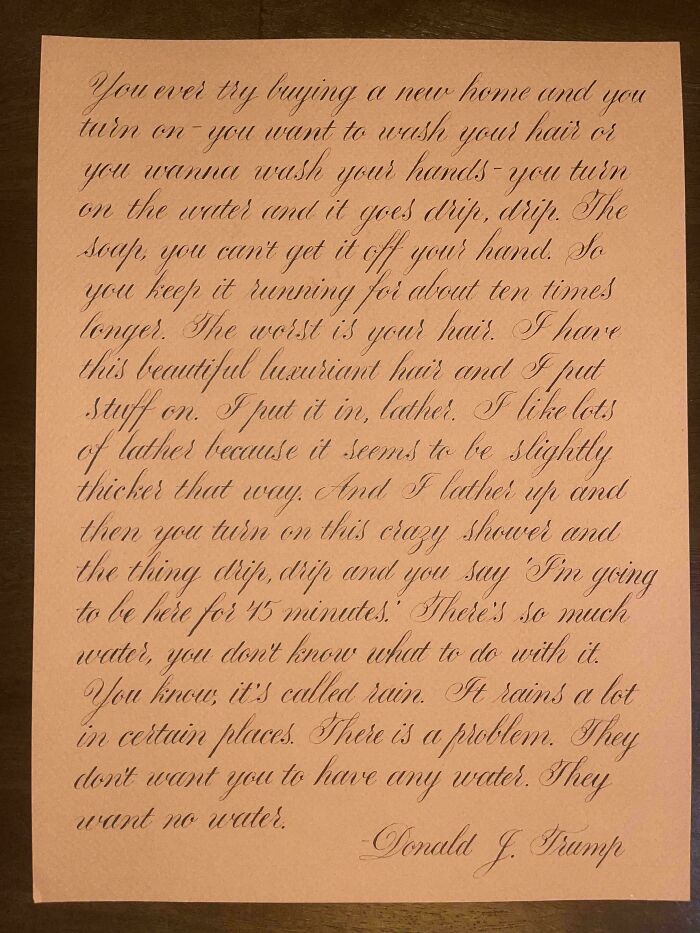 You ever try buying a new home and you
turn on - you want to wash your hair or
you wanna wash your hands - you turn
on the water and it goes drip, drip. The
soap, you can't get it off your hand. So
you keep it running for about ten times
longer. The worst is your hair. I have
this beautiful luxuriant hair and I put
stuff on. I put it in, lather. I like lots
of lather because it seems to be slightly
thicker that way. And I lather up and
then you turn on this crazy shower and
the thing drip, drip and you say 'I'm going
to be here for 45 minutes.' There's so much
water, you don't know what to do with it.
You know, it's called rain. It rains a lot
in certain places. There is a problem. They
don't want you to have any water. They
want no water.
-Donald J. Trump